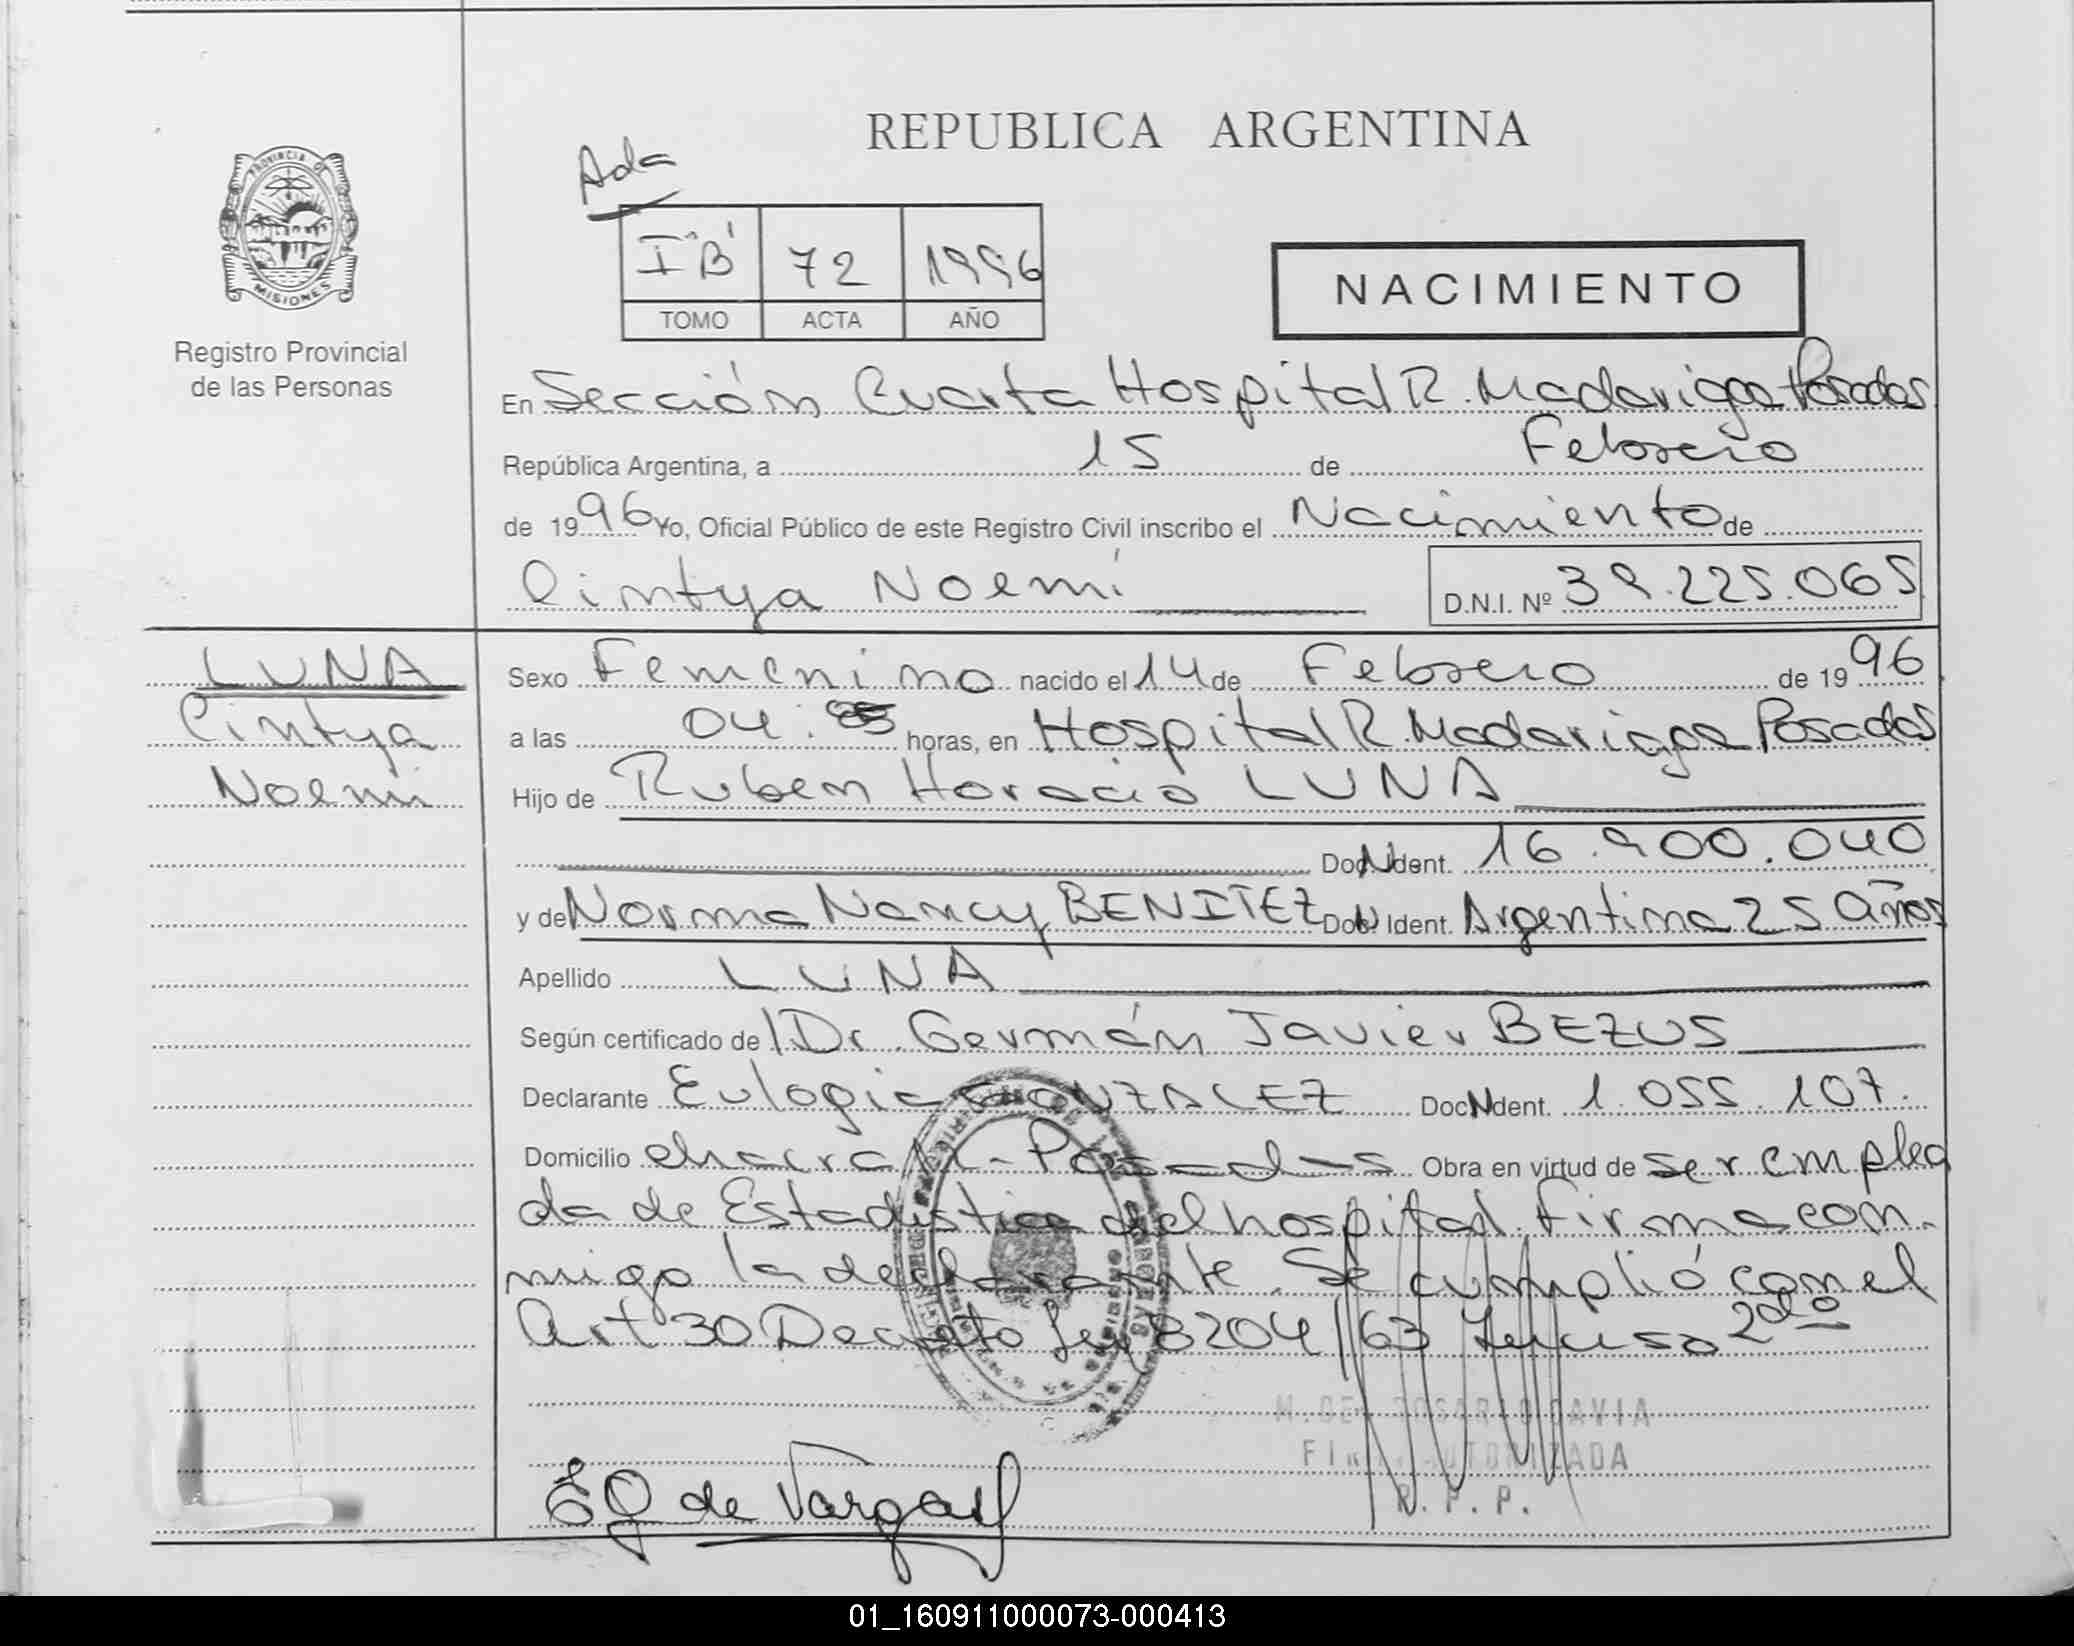 REPUBLICA ARGENTINA
Ada
PROVINCIA DE
MISIONES
Registro Provincial
de las Personas
I "B" 72 1996
TOMO ACTA AÑO
NACIMIENTO
En Sección Cuarta Hospital R. Madariaga Posadas
República Argentina, a 15 de Febrero
de 1996 Yo, Oficial Público de este Registro Civil inscribo el Nacimiento de
Cintya Noemí D.N.I. Nº 39.225.065
LUNA
Cintya
Noemi
Sexo Femenino nacido el 14 de Febrero de 1996
a las 04: horas, en Hospital R. Madariaga Posadas
Hijo de Ruben Horacio LUNA
Doc. Ident. 16.900.040
y de Norma Nancy BENITEZ Doc. Ident. Argentina 25 años
Apellido LUNA
Según certificado de Dr. Germán Javier BEZUS
Declarante Eulogia GONZALEZ Doc. Ident. 1.055.107.
Domicilio chacra - Posadas Obra en virtud de ser emplea
da de Estadistica del hospital. Firma con-
migo la declarante. Se cumplió con el
Art 30 Decreto Ley 8204/63 Inciso 2do
M. DEL ROSARIO DAVIA
FIRMA AUTORIZADA
R.P.P.
EG de Vargas
01_160911000073-000413